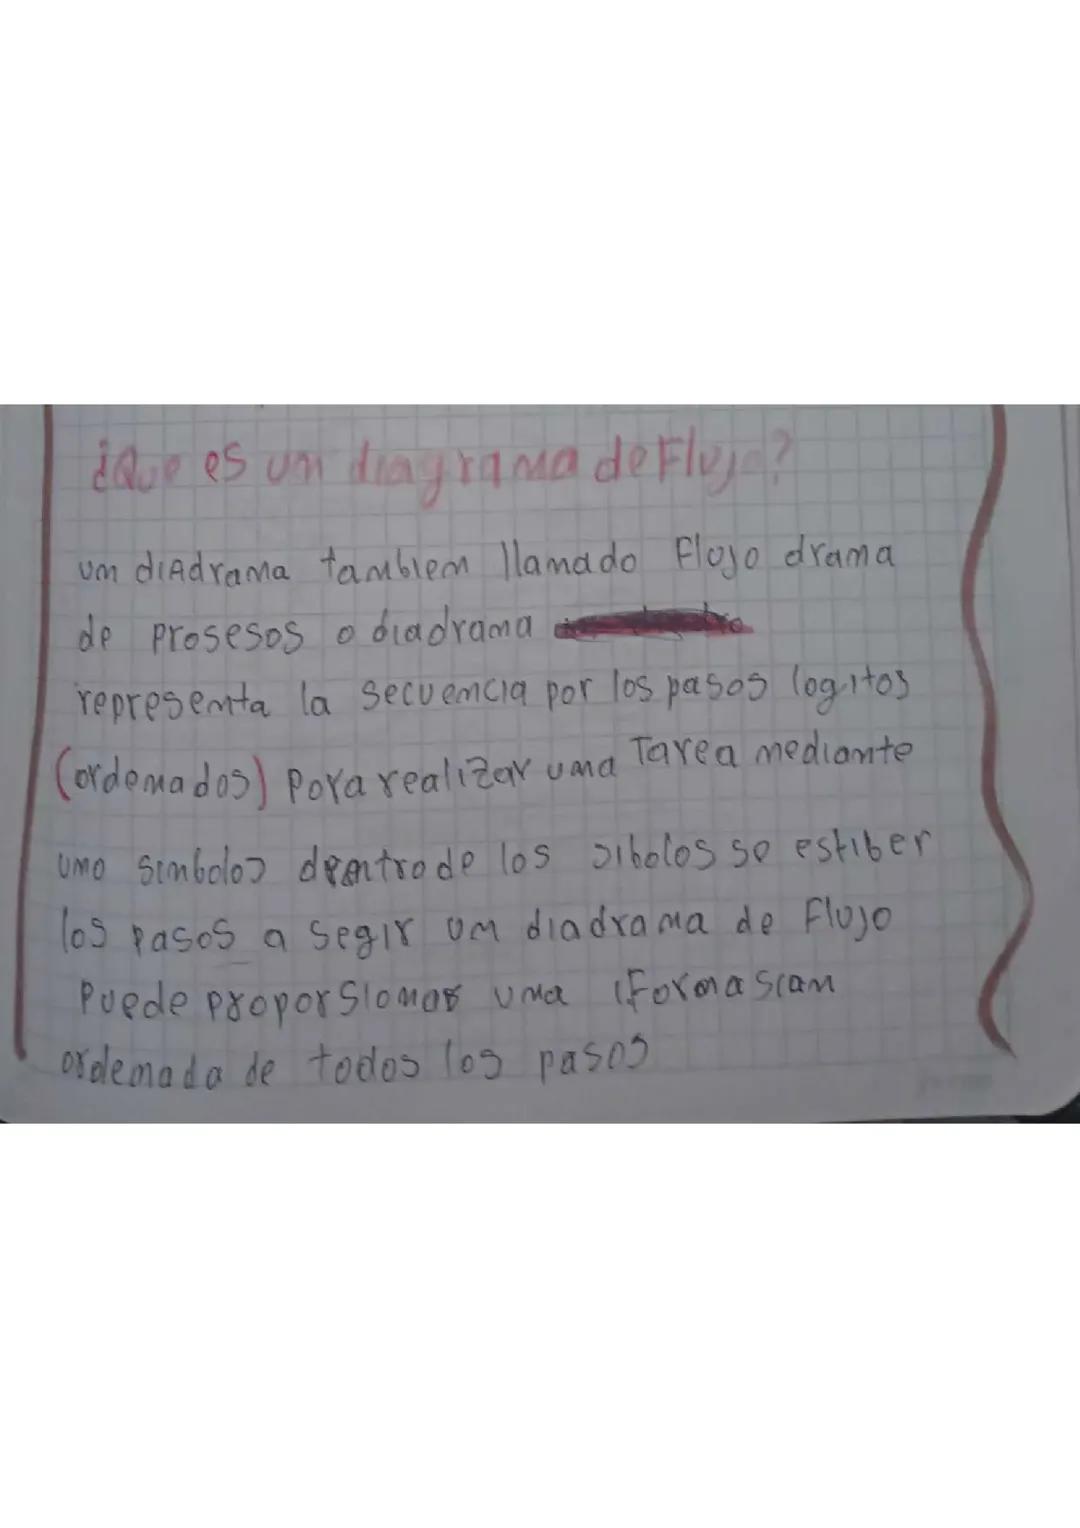 ¿Que es um diagrama de Flujo?
um diAdrama tamblem llamado Flojo drama
de prosesos o diadrama
representa la secuemcia por los pasos logitos
(ordemados) Para realizar uma Tarea mediamte
umo simbolos dentro de los sibolos se estiber
los pasos a segir um diadrama de Flujo
Puede proporsiomar uma iFormasiam
ordemada de todos los pasos